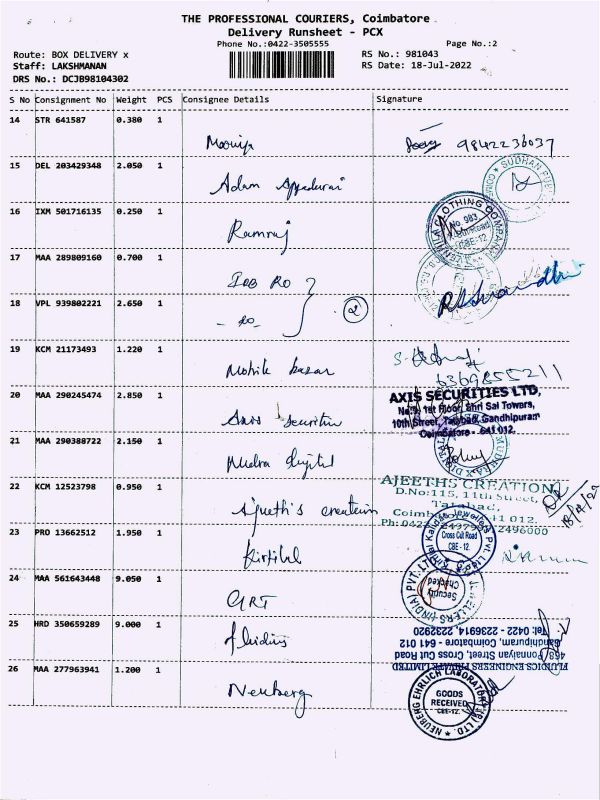 THE PROFESSIONAL COURIERS, Coimbatore
Delivery Runsheet - PCX
Phone No.:0422-3505555
Page No.:2
Route: BOX DELIVERY x
RS No.: 981043
Staff: LAKSHMANAN
RS Date: 18-Jul-2022
DRS No.: DCJB98104302
S No Consignment No Weight PCS Consignee Details Signature
14 STR 641587 0.380 1
9842236037
15 DEL 203429348 2.050 1
Adam
SUDHAN
16 IXM 501716135 0.250 1
Ramraj
CLOTHING COMPANY
No 983,
CBE-12
17 MAA 289809160 0.700 1
IOB RO
18 VPL 939802221 2.650 1
- do - 2
19 KCM 21173493 1.220 1
6369855211
20 MAA 290245474 2.850 1
Axis Securities
AXIS SECURITIES LTD,
1st Floor, Shri Sai Towers,
10th Street, Tatabad, Gandhipuram
Coimbatore - 641 012.
21 MAA 290388722 2.150 1
Mudra digital
22 KCM 12523798 0.950 1
Ajeeth's creation
AJEETHS CREATION
D.No:115, 11th Street,
Tatabad,
18/7/22
23 PRO 13662512 1.950 1
Kirtilal
Cross Cut Road
CBE - 12.
24 MAA 561643448 9.050 1
GRT
JEWELLERS (INDIA) PVT. LTD
Security
Checked
25 HRD 350659289 9.000 1
fluidics
FLUIDICS ENGINEERS PRIVATE LIMITED
468, Ponnaiyan Street, Cross Cut Road
Gandhipuram, Coimbatore - 641 012
Tel: 0422 - 2236914, 2232920
26 MAA 277963941 1.200 1
Neuberg
NEUBERG EHRLICH LABORATORY (P) LTD.
GOODS
RECEIVED
CBE-12.